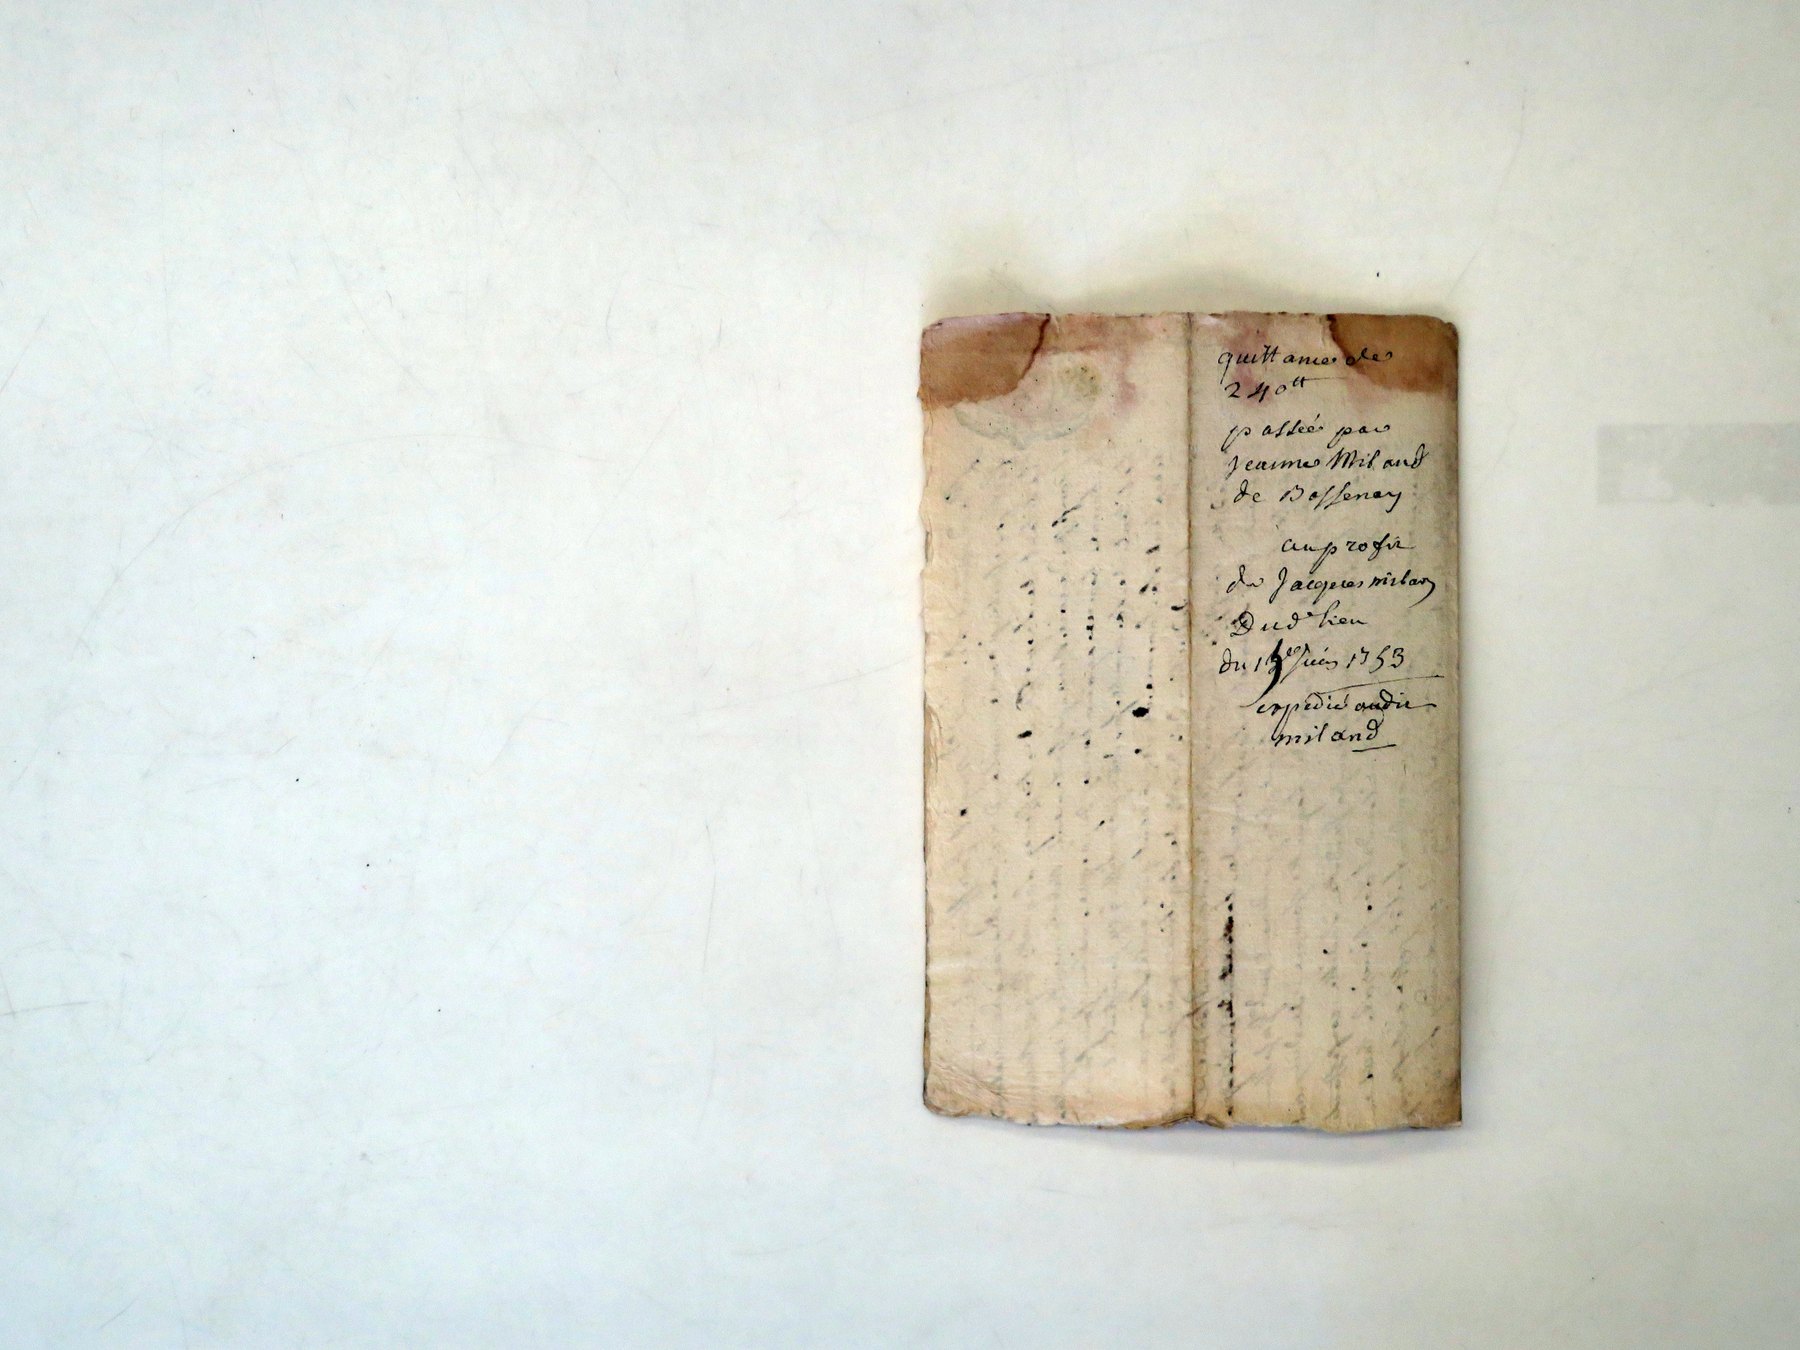 quittance de
240tt
passée par
Jeanne Miland
de Bossenay
au profit
de Jacques miland
Dudt lieu
du juin 1753
expedié audit
miland